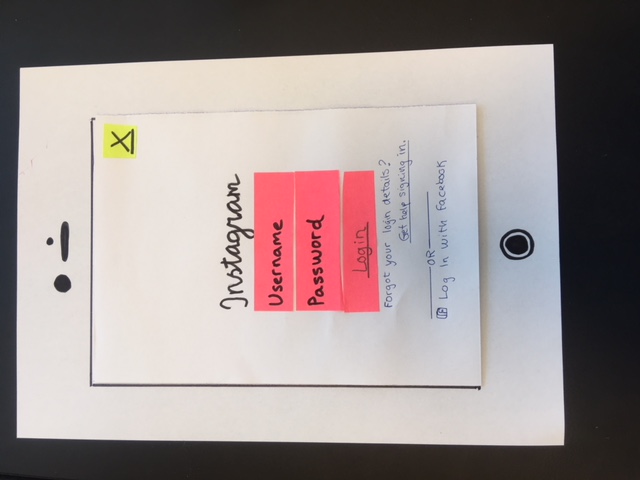 X
Instagram
Username
Password
Login
Forgot your login details?
Get help signing in.
OR
f Log In with facebook